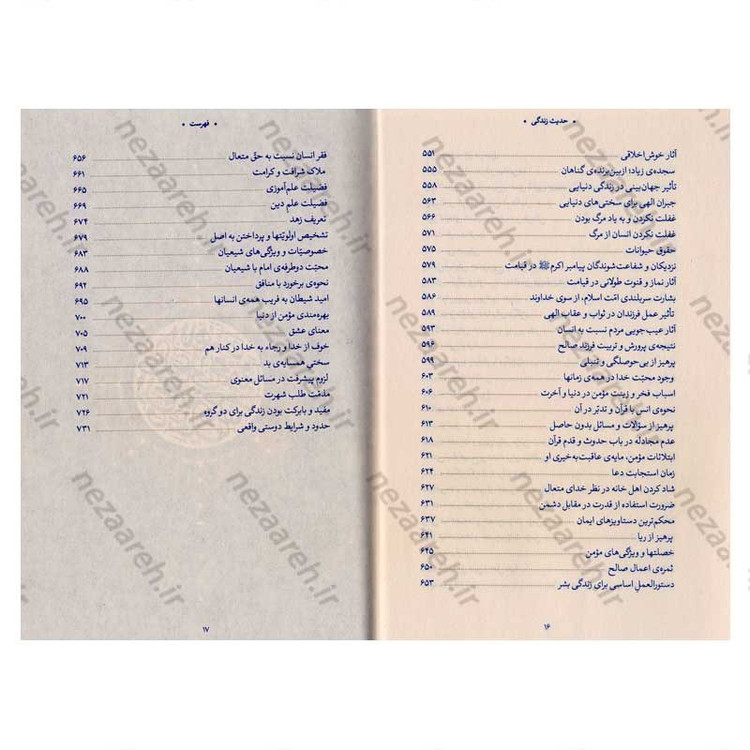 • حدیث زندگی •
آثار خوش‌اخلاقی ۵۵۱
سجده‌ی زیاد؛ ازبین‌برنده‌ی گناهان ۵۵۵
تأثیر جهان‌بینی در زندگی دنیایی ۵۵۸
جبران الهی برای سختی‌های دنیایی ۵۶۳
غفلت نکردن و به یاد مرگ بودن ۵۶۶
غفلت نکردن انسان از مرگ ۵۷۱
حقوق حیوانات ۵۷۵
نزدیکان و شفاعت‌شوندگان پیامبر اکرم ﷺ در قیامت ۵۷۹
آثار نماز و قنوت طولانی در قیامت ۵۸۳
بشارت سربلندی امّت اسلام، از سوی خداوند ۵۸۶
تأثیر عمل فرزندان در ثواب و عقاب الهی ۵۸۹
آثار عیب‌جویی مردم نسبت به انسان ۵۹۳
نتیجه‌ی پرورش و تربیت فرزند صالح ۵۹۶
پرهیز از بی‌حوصلگی و تنبلی ۵۹۹
وجود محبّت خدا در همه‌ی زمانها ۶۰۳
اسباب فخر و زینت مؤمن در دنیا و آخرت ۶۰۶
نحوه‌ی انس با قرآن و تدبّر در آن ۶۱۰
پرهیز از سؤالات و مسائل بدون حاصل ۶۱۳
عدم مجادله در باب حدوث و قدم قرآن ۶۱۸
ابتلائات مؤمن، مایه‌ی عاقبت‌به‌خیری او ۶۲۱
زمان استجابت دعا ۶۲۴
شاد کردن اهل خانه در نظر خدای متعال ۶۲۷
ضرورت استفاده از قدرت در مقابل دشمن ۶۳۱
محکم‌ترین دستاویزهای ایمان ۶۳۷
پرهیز از ریا ۶۴۱
خصلتها و ویژگی‌های مؤمن ۶۴۵
ثمره‌ی اعمال صالح ۶۵۰
دستورالعمل اساسی برای زندگی بشر ۶۵۳
۱۶
• فهرست •
فقر انسان نسبت به حقّ متعال ۶۵۶
ملاک شرافت و کرامت ۶۶۱
فضیلت علم‌آموزی ۶۶۵
فضیلت علم دین ۶۶۹
تعریف زهد ۶۷۴
تشخیص اولویّتها و پرداختن به اصل ۶۷۹
خصوصیّات و ویژگی‌های شیعیان ۶۸۳
محبّت دوطرفه‌ی امام با شیعیان ۶۸۸
نحوه‌ی برخورد با منافق ۶۹۲
امید شیطان به فریب همه‌ی انسانها ۶۹۵
بهره‌مندی مؤمن از دنیا ۷۰۰
معنای عشق ۷۰۵
خوف از خدا و رجاء به خدا در کنار هم ۷۰۹
سختی همسایه‌ی بد ۷۱۳
لزوم پیشرفت در مسائل معنوی ۷۱۷
مذمّت طلب شهرت ۷۲۱
مفید و بابرکت بودن زندگی برای دو گروه ۷۲۶
حدود و شرایط دوستی واقعی ۷۳۱
۱۷
nezaareh.ir